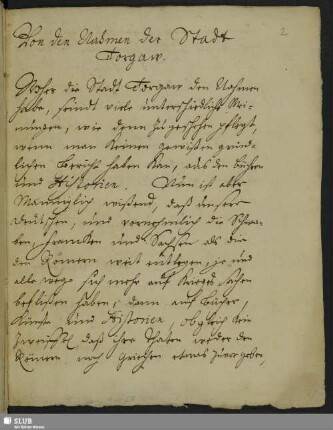 2
Von den Nahmen der Stadt
Torgaw.
Woher die Stadt Torgaw den Nahmen
habe, seindt viele unterschiedliche Mei-
nungen, wie denn zu geschehen pfleget,
wenn man keinen gewissen gründ-
lichen Bericht haben kan, aus den büchern
und Historien. Nun ist aber
Männiglich wißend, daß unsere
deutschen, und vornehmlich die Schwa-
ben, Francken und Sachsen als die
den Römern weit
alle wege sich mehr auf Krieges sachen
beflißen haben, dann auf bücher,
Künste und Historien, obgleich kein
zweiffel, daß ihre Thaten weder den
Römern noch Griechen etwas zuvor geben,
SLUB
Wir führen Wissen.